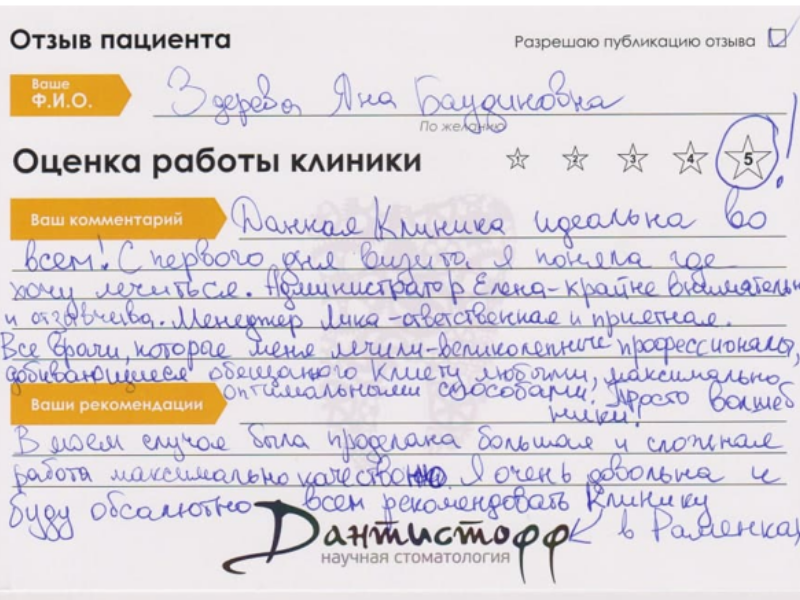 Отзыв пациента
Разрешаю публикацию отзыва
Ваше
Ф.И.О.
Здерева Яна Баудиновна
По желанию
Оценка работы клиники
1 2 3 4 5 !
Ваш комментарий
Данная Клиника идеальна во
всем! С первого дня визита я поняла где
хочу лечиться. Администратор Елена - крайне внимательн
и отзывчива. Менеджер Лика - ответственная и приятная.
Все врачи, которые меня лечили - великолепные профессионалы,
добивающиеся обещанного Клиенту любыми, максимально
оптимальными способами. Просто волшеб
ники!
Ваши рекомендации
В моем случае была проделана большая и сложная
работа максимально качественно. Я очень довольна и
буду обсалютно всем рекомендовать Клинику
Дантистофф
в Раменках
научная стоматология